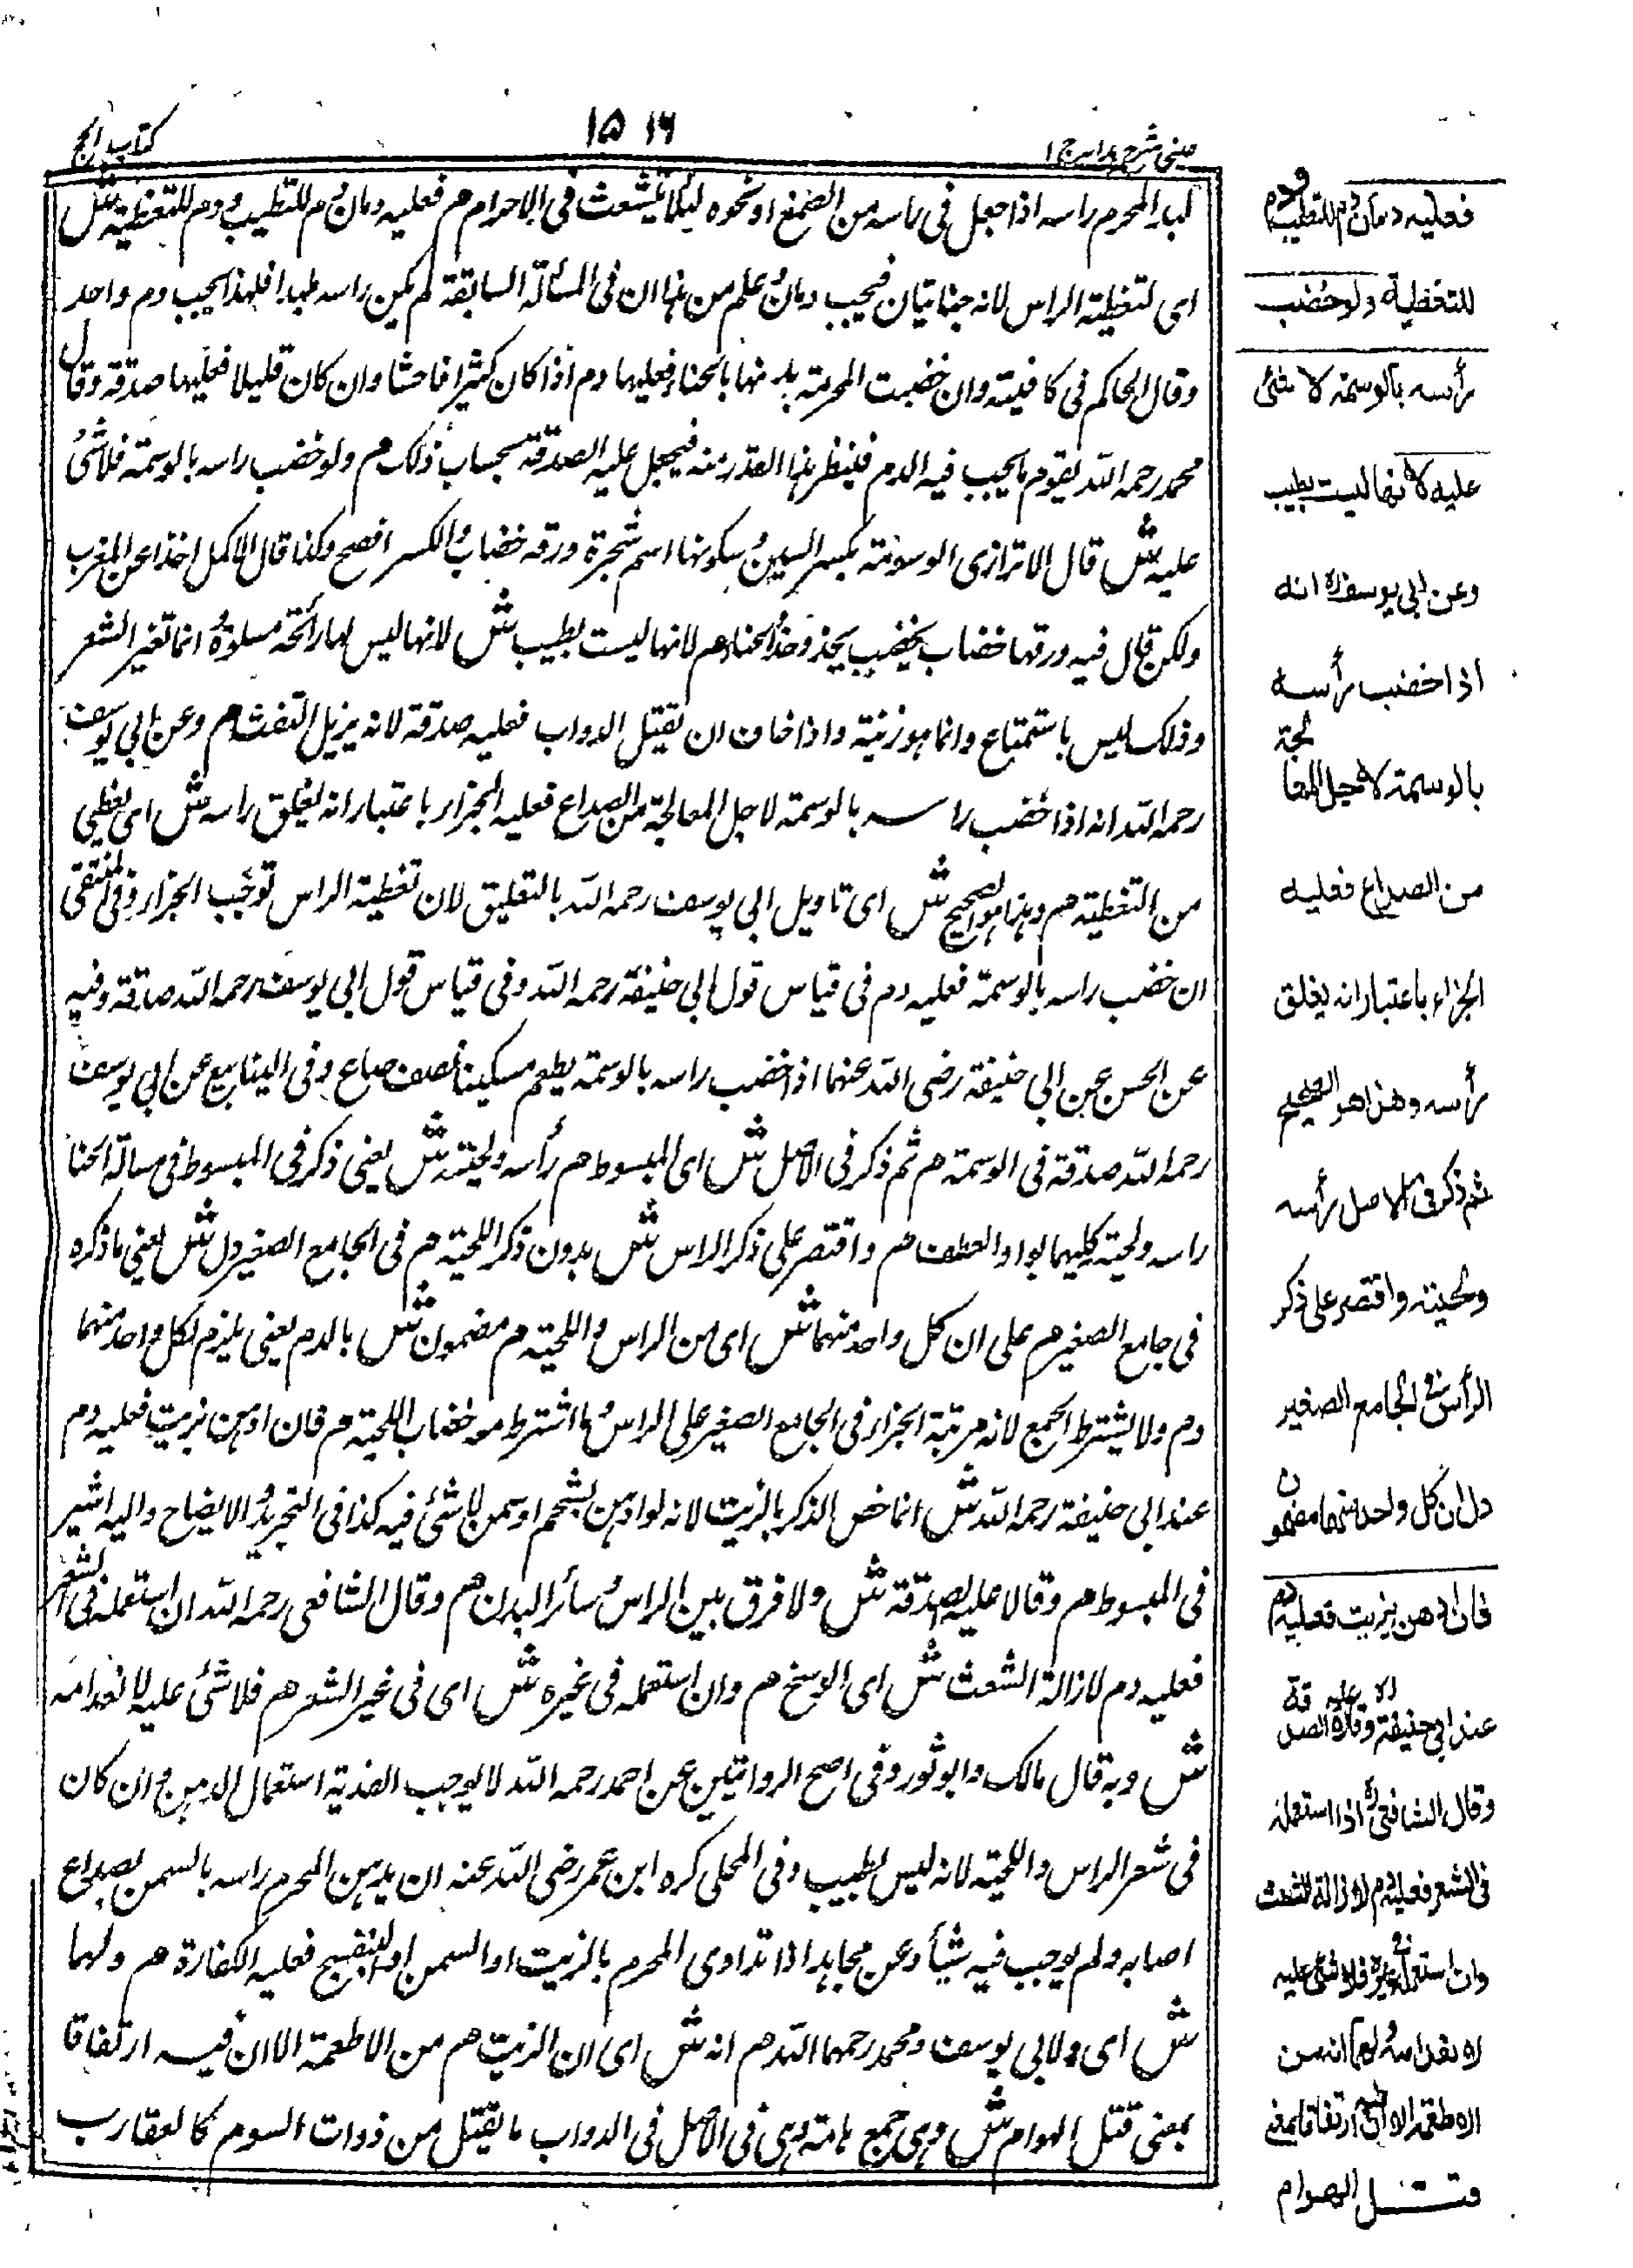 عینی شرح ہدایہ ج ۱
۱۵۱۶
کتاب الحج
لبد المحرم راسه اذا جعل فی راسه من الصمغ او نحوه لئلا یتشعث فی الاحرام م فعلیه دمان دم للتطیب و دم للتغطیة ش
ای لتغطیة الراس لانه جنایتان فیجب دمان علم من هذا ان فی المسألة السابقة لم یکن راسه ملبدا فلهذا یجب دم واحد
وقال الحاکم فی کافیته وان خضبت المحرمة یدیها بالحناء فعلیها دم اذا کان کثیرا فاحشا وان کان قلیلا فعلیها صدقة وقال
محمد رحمه الله یقوم ما یجب فیه الدم فینظر هذا القدر منه فیجعل علیه الصدقة بحساب ذلک م ولو خضب راسه بالوسمة فلا شئ
علیه ش قال الاترازی الوسمة بکسر السین وسکونها اسم شجرة ورقه خضاب والکسر افصح وکذا قال الاکمل اخذا عن المغرب
ولکن قال فیه ورقها خضاب یخضب بحذو حذ الحناء م لانها لیست بطیب ش لانها لیس لها رائحة مستلذة انما تغیر الشعر
وذلک لیس باستمتاع وانما هو زینة واذا خاف ان یقتل الدواب فعلیه صدقة لانه یزیل التفث م وعن ابی یوسف
رحمه الله انه اذا خضب راسه بالوسمة لاجل المعالجة من الصداع فعلیه الجزاء باعتبار انه یغلق راسه ش ای یغطی
من التغطیة م وهذا هو الصحیح ش ای تاویل ابی یوسف رحمه الله بالتغلیق لان تغطیة الراس توجب الجزاء وفی المنتقی
ان خضب راسه بالوسمة فعلیه دم فی قیاس قول ابی حنیفة رحمه الله وفی قیاس قول ابی یوسف رحمه الله صدقة وفیه
عن الحسن عن ابی حنیفة رضی الله عنهما اذا خضب راسه بالوسمة یطعم مسکینا نصف صاع وفی الینابیع عن ابی یوسف
رحمه الله صدقة فی الوسمة م ثم ذکر فی الاصل ش ای المبسوط م رأسه ولحیته ش یعنی ذکر فی المبسوط فی مسالة الحنا
راسه ولحیته کلیهما بواو العطف م واقتصر علی ذکر الراس ش بدون ذکر اللحیة م فی الجامع الصغیر دل ش یعنی ما ذکره
فی جامع الصغیر م علی ان کل واحد منهما ش ای من الراس واللحیة م مضمون ش بالدم یعنی یلزم لکل واحد منهما
دم ولا یشترط الجمع لانه مرتبة الجزاء فی الجامع الصغیر علی الراس وما اشترط معه خضاب اللحیة م فان ادهن بزیت فعلیه دم
عند ابی حنیفة رحمه الله ش انما خص الذکر بالزیت لانه لو ادهن بشحم او سمن لا شئ فیه کذا فی التجرید والایضاح والیه اشیر
فی المبسوط م وقالا علیه الصدقة ش ولا فرق بین الراس وسائر البدن م وقال الشافعی رحمه الله ان استعمله فی الشعر
فعلیه دم لازالة الشعث ش ای الوسخ م وان استعمله فی غیره ش ای فی غیر الشعر م فلا شئ علیه لانعدامه
ش وبه قال مالک وابو ثور وفی اصح الروایتین عن احمد رحمه الله لا یوجب الفدیة استعمال الدهن وان کان
فی شعر الراس واللحیة لانه لیس بطیب وفی المحلی کره ابن عمر رضی الله عنه ان یدهن المحرم راسه بالسمن لصداع
اصابه ولم یوجب فیه شیأ وعن مجاهد اذا تداوی المحرم بالزیت او السمن او البنفسج فعلیه الکفارة م ولهما
ش ای ولابی یوسف ومحمد رحمهما الله م انه ش ای ان الزیت م من الاطعمة الا ان فیه ارتفاقا
بمعنی قتل الهوام ش وهی جمع هامة وهی فی الاصل فی الدواب ما یقتل من ذوات السموم کالعقارب
فعلیه دمان دم للتطیب ودم
للتغطیة ولو خضب
رأسه بالوسمة لا شئ
علیه لانها لیست بطیب
وعن ابی یوسف رہ انه
اذا خضب رأسه
بالوسمة لاجل المعالجة
من الصداع فعلیه
الجزاء باعتبار انه یغلق
رأسه وهذا هو الصحیح
ثم ذکر فی الاصل رأسه
ولحیته واقتصر علی ذکر
الرأس فی الجامع الصغیر
دل ان کل واحد منهما مضمون
فان ادهن بزیت فعلیه دم
عند ابی حنیفة وقالا علیه الصدقة
وقال الشافعی رہ اذا استعمله
فی الشعر فعلیه دم لازالة الشعث
وان استعمله فی غیره فلا شئ علیه
لانعدامه ولهما انه من
الاطعمة الا ان فیه ارتفاقا بمعنی
قتل الهوام